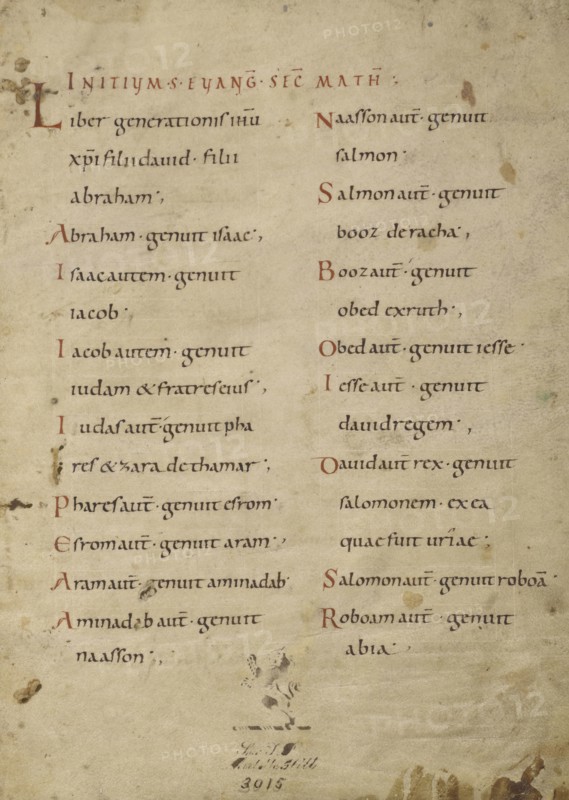 INITIUM·S·EUANG̅·SEC̅ MATH̅:
Liber generationis ihu̅
xp̅i filii dauid· filii
abraham·,
Abraham·genuit isaac·,
Isaac autem·genuit
iacob·
Iacob autem·genuit
iudam & fratres eius·,
Iudas aut̅·genuit pha
res & zara de thamar·,
Phares aut̅·genuit esrom·
Esrom aut̅·genuit aram·,
Aram aut̅·genuit aminadab·
Aminadab aut̅·genuit
naasson·,
Naasson aut̅·genuit
salmon·
Salmon aut̅·genuit
booz de racha·,
Booz aut̅·genuit
obed ex ruth·,
Obed aut̅·genuit iesse·
Iesse aut̅·genuit
dauid regem·,
Dauid aut̅ rex·genuit
salomonem·ex ea
quae fuit uriae·,
Salomon aut̅·genuit roboa̅·
Roboam aut̅·genuit
abia·
3015
PHOTO12